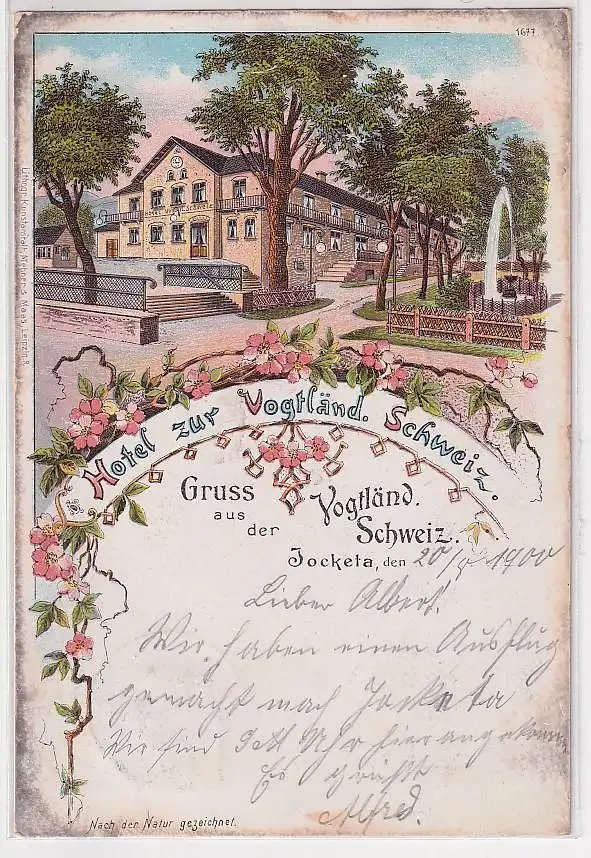 1677
Hotel zur Vogtländ. Schweiz.
Gruss
aus
der
Vogtländ.
Schweiz.
Jocketa, den 20/ 1900
Lieber Albert.
Wir haben einen Ausflug
gemacht nach Jocketa
Wir sind Uhr hier angekommen
Es grüßt
Alfred.
Nach der Natur gezeichnet.